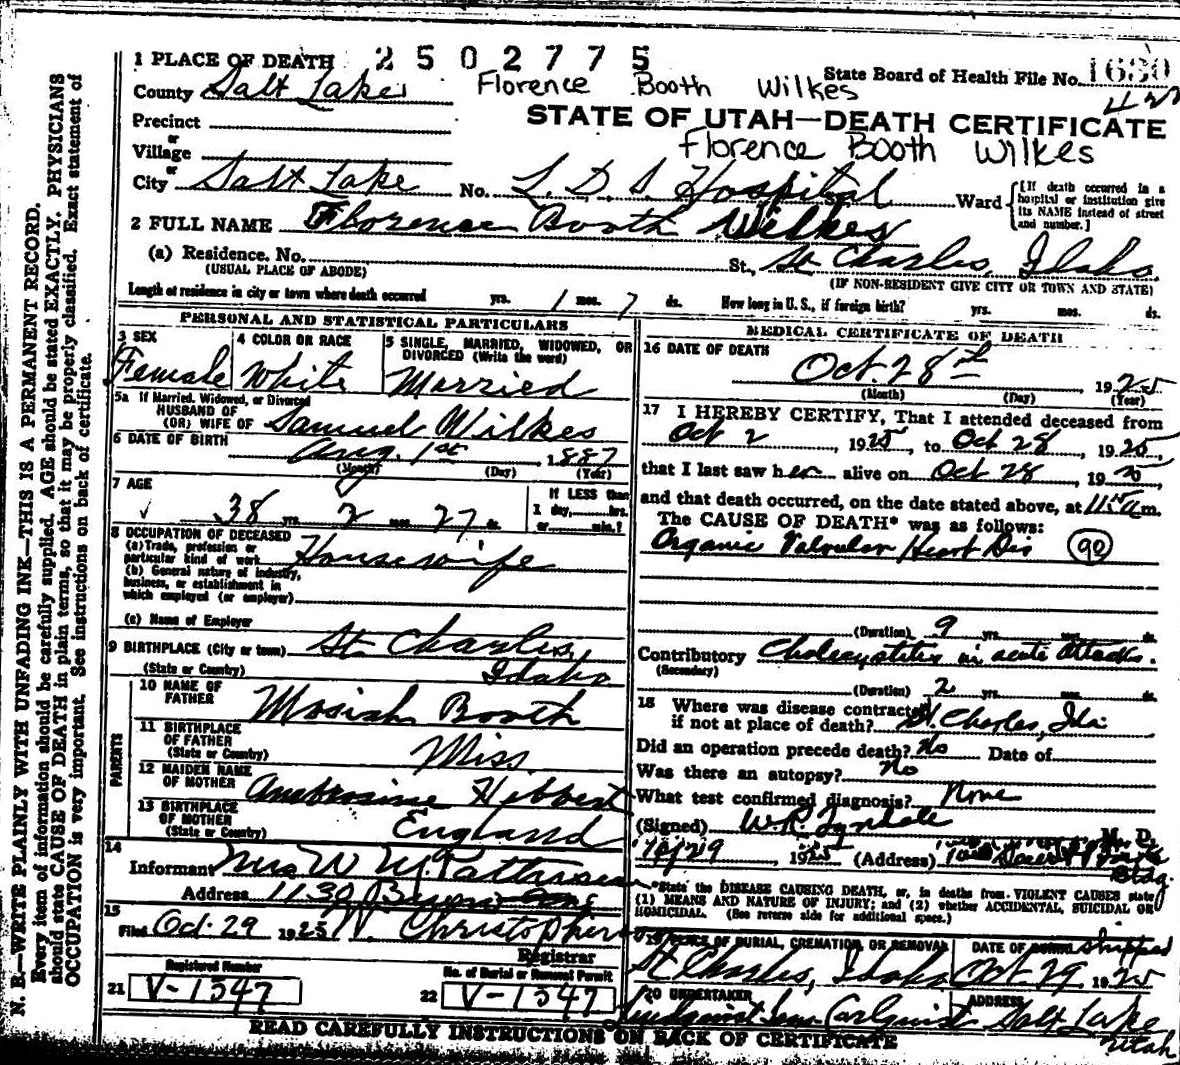 N. B.—WRITE PLAINLY WITH UNFADING INK—THIS IS A PERMANENT RECORD.
Every item of information should be carefully supplied. AGE should be stated EXACTLY. PHYSICIANS
should state CAUSE OF DEATH in plain terms, so that it may be properly classified. Exact statement of
OCCUPATION is very important. See instructions on back of certificate.
2502775
1 PLACE OF DEATH
State Board of Health File No. 1630
County Salt Lake
Florence Booth Wilkes
422
STATE OF UTAH—DEATH CERTIFICATE
Florence Booth Wilkes
Precinct
or
Village
or
City Salt Lake No. L. D. S. Hospital Ward
[If death occurred in a
hospital or institution give
its NAME instead of street
and number.]
2 FULL NAME Florence Booth Wilkes
(a) Residence. No. St., St Charles, Idaho.
(USUAL PLACE OF ABODE)
(IF NON-RESIDENT GIVE CITY OR TOWN AND STATE)
Length of residence in city or town where death occurred yrs. 1 mos. 7 ds. How long in U. S., if foreign birth? yrs. mos. ds.
PERSONAL AND STATISTICAL PARTICULARS
3 SEX
Female
4 COLOR OR RACE
White
5 SINGLE, MARRIED, WIDOWED, OR
DIVORCED (Write the word)
Married
5a If Married, Widowed, or Divorced
HUSBAND OF
(OR) WIFE OF Samuel Wilkes
6 DATE OF BIRTH Aug. 1st, 1887
(Month) (Day) (Year)
7 AGE
38 yrs. 2 mos. 27 ds.
If LESS than
1 day, hrs.
or min.?
8 OCCUPATION OF DECEASED
(a) Trade, profession or
particular kind of work Housewife
(b) General nature of industry,
business, or establishment in
which employed (or employer)
(c) Name of Employer
9 BIRTHPLACE (City or town) St Charles,
(State or Country) Idaho
PARENTS
10 NAME OF
FATHER Mosiah Booth
11 BIRTHPLACE
OF FATHER
(State or Country) Miss.
12 MAIDEN NAME
OF MOTHER Ambrosine Hibbert
13 BIRTHPLACE
OF MOTHER
(State or Country) England
14
Informant Mrs W M
Address 1130
15
Filed Oct. 29 1925 W Christopherson
Registrar
Registered Number
21 V-1547
No. of Burial or Removal Permit
22 V-1547
MEDICAL CERTIFICATE OF DEATH
16 DATE OF DEATH
Oct. 28th, 1925
(Month) (Day) (Year)
17 I HEREBY CERTIFY, That I attended deceased from
Oct 2, 1925, to Oct 28, 1925,
that I last saw her alive on Oct 28, 1925,
and that death occurred, on the date stated above, at a m.
The CAUSE OF DEATH* was as follows:
Organic Valvular Heart Dis 90
(Duration) 9 yrs. mos. ds.
Contributory Cholecystitis in acute attacks.
(Secondary)
(Duration) 2 yrs. mos. ds.
18 Where was disease contracted
if not at place of death? St. Charles, Ida
Did an operation precede death? No Date of
Was there an autopsy? No
What test confirmed diagnosis? None
(Signed) W.R. Tyndale M. D.
10/29, 1925 (Address) Bldg.
*State the DISEASE CAUSING DEATH, or, in deaths from VIOLENT CAUSES state
(1) MEANS AND NATURE OF INJURY; and (2) whether ACCIDENTAL, SUICIDAL OR
HOMICIDAL. (See reverse side for additional space.)
19 PLACE OF BURIAL, CREMATION, OR REMOVAL
St Charles, Idaho
DATE OF BURIAL shipped
Oct 29, 1925
20 UNDERTAKER
Carlquist
ADDRESS
Salt Lake
Utah
READ CAREFULLY INSTRUCTIONS ON BACK OF CERTIFICATE